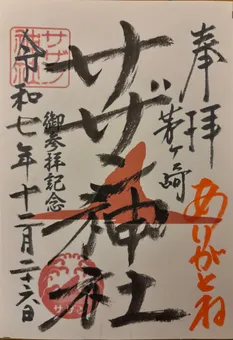 奉拝
茅ヶ崎
ありがとね
サザン神社
御参拝記念
サザン神社
令和七年十二月二十六日